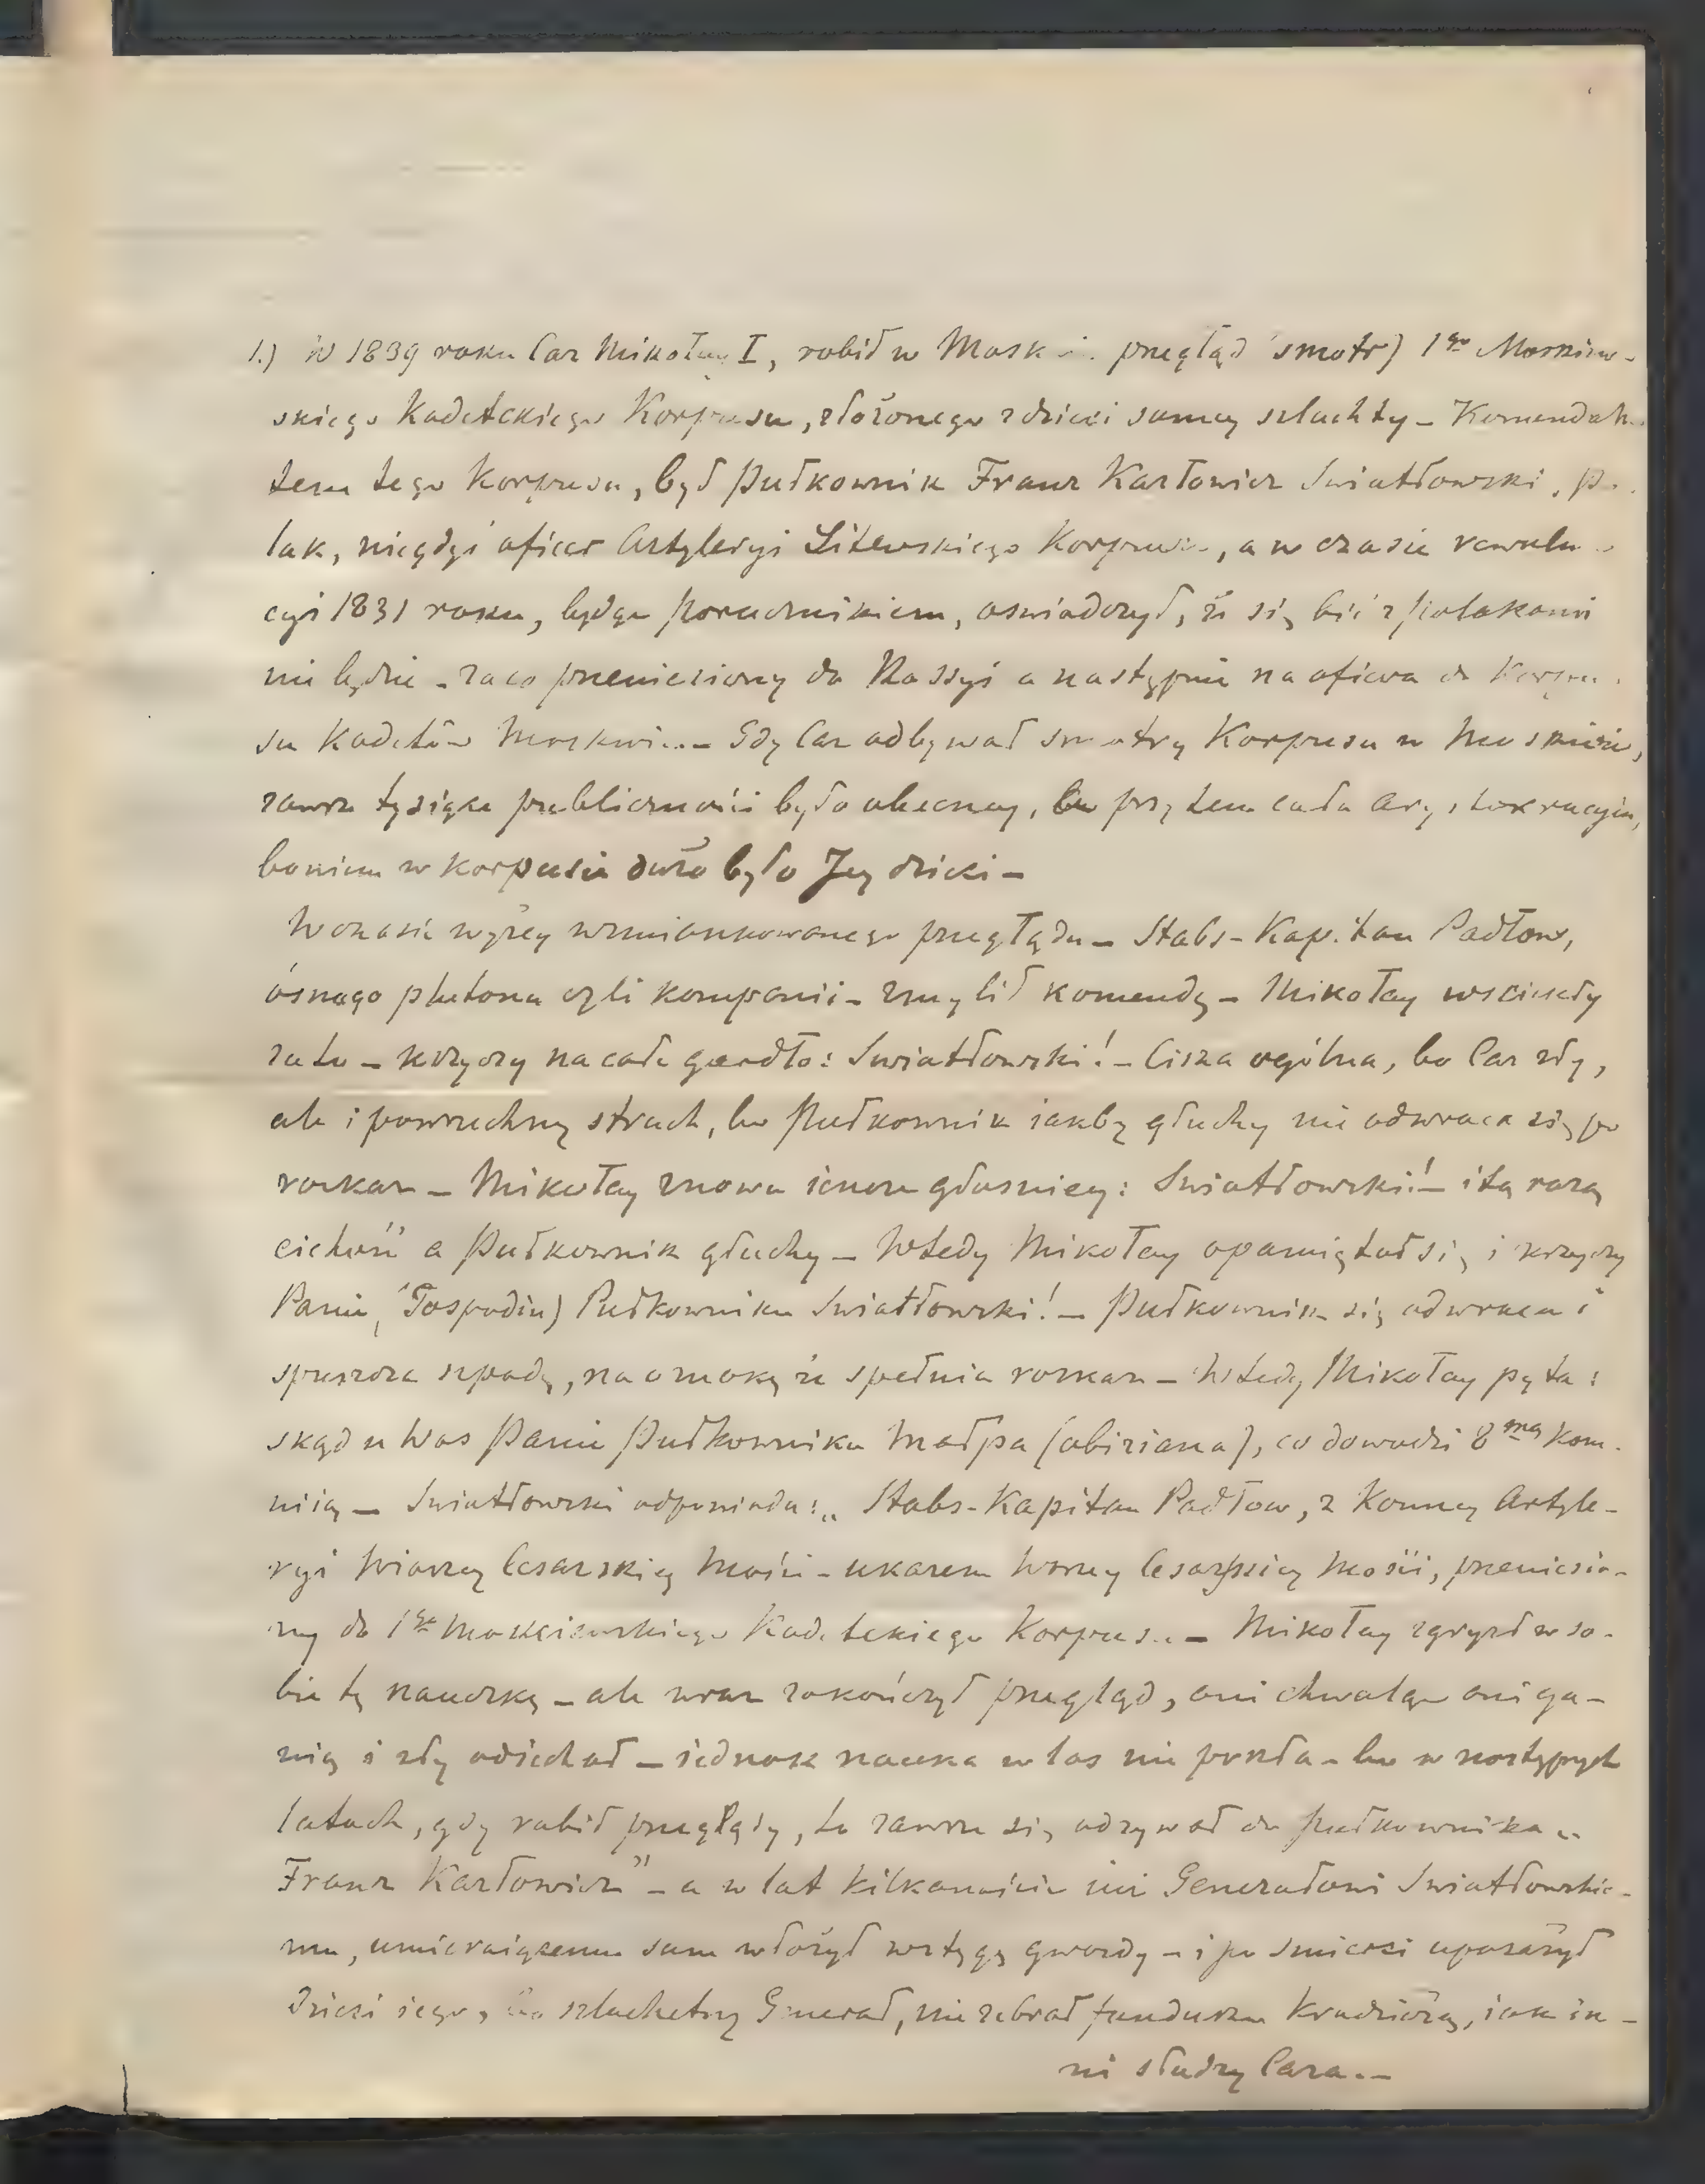 1.) W 1839 roku Car Mikołay I, robił w przegląd smotr) 1go Moskiew-
skiego Kadetckiego Korpusu, złożonego z dzieci samey szlachty – Komendan
tem tego Korpusu, był Pułkownik Franz Karłowicz Swiatłowski, Po
lak, niegdyś oficer Artyleryi Litewskiego Korpusu, a w czasie rewolu
cyi 1831 roku, będąc Porucznikiem, oswiadczył, że się bić z Polakami
nie będzie – za co przeniesiony do Rossyi a następnie na oficera do Korpu
su Kadetów – Gdy Car odbywał smotry Korpusu w Moskwie,
zawsze tysiące publiczności było obecney, bo przytem cała Arystokracyia,
bowiem w korpusie dużo było Jey dzieci –
W czasie wyżey wzmiankowanego przeglądu – Stabs-Kapitan Padłow,
ósmego plutonu czyli kompanii – zmylił komendę – Mikołay wsciekły
za to – krzyczy na całe gardło: Swiatłowski! – Cisza ogólna, bo Car zły,
ale i powszechny strach, bo Pułkownik iakby głuchy nie odwraca się po
rozkaz – Mikołay znowu ieszcze głosniey: Swiatłowski! – i tą razą
cichość a Pułkownik głuchy – Wtedy Mikołay opamiętał się i krzyczy
Panie (Gospodin) Pułkowniku Swiatłowski! – Pułkownik się odwraca i
spuszcza szpadę, na oznakę że spełnia rozkaz – Wtedy Mikołay pyta:
skąd u Was Panie Pułkowniku Małpa (abiziana), co dowodzi 8mą kom.
niią – Swiatłowski odpowiada: „ Stabs-Kapitan Padłow, z Konney Artyle-
ryi Waszey Cesarskiey Mości – ukazem Waszey Cesarskiey Mości, przeniesio-
ny do 1go Moskiewskiego Kadetckiego Korpusu – Mikołay zgryzł w so-
bie tę nauczkę – ale wraz zakończył przegląd, ani chwaląc ani ga-
nią i zły odiechał – iednak nauka w las nie poszła – bo w następnych
latach, gdy robił przeglądy, to zawsze się odzywał do pułkownika „
Franz Karłowicz” – a w lat kilkanaście iuż Generałowi Swiatłowskie-
mu, umieraiącemu sam włożył wstęgę gwozdy – i po smierci uposażył
dzieci iego, bo szlachetny Generał, nie zebrał funduszu kradzieżą, iak in-
ni słudzy Cara. –